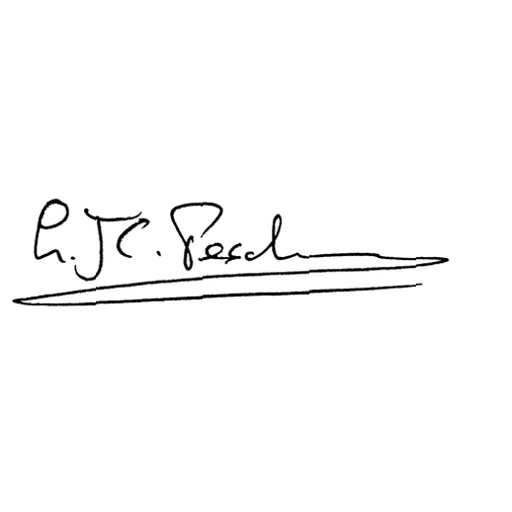 h. JC. Pesch